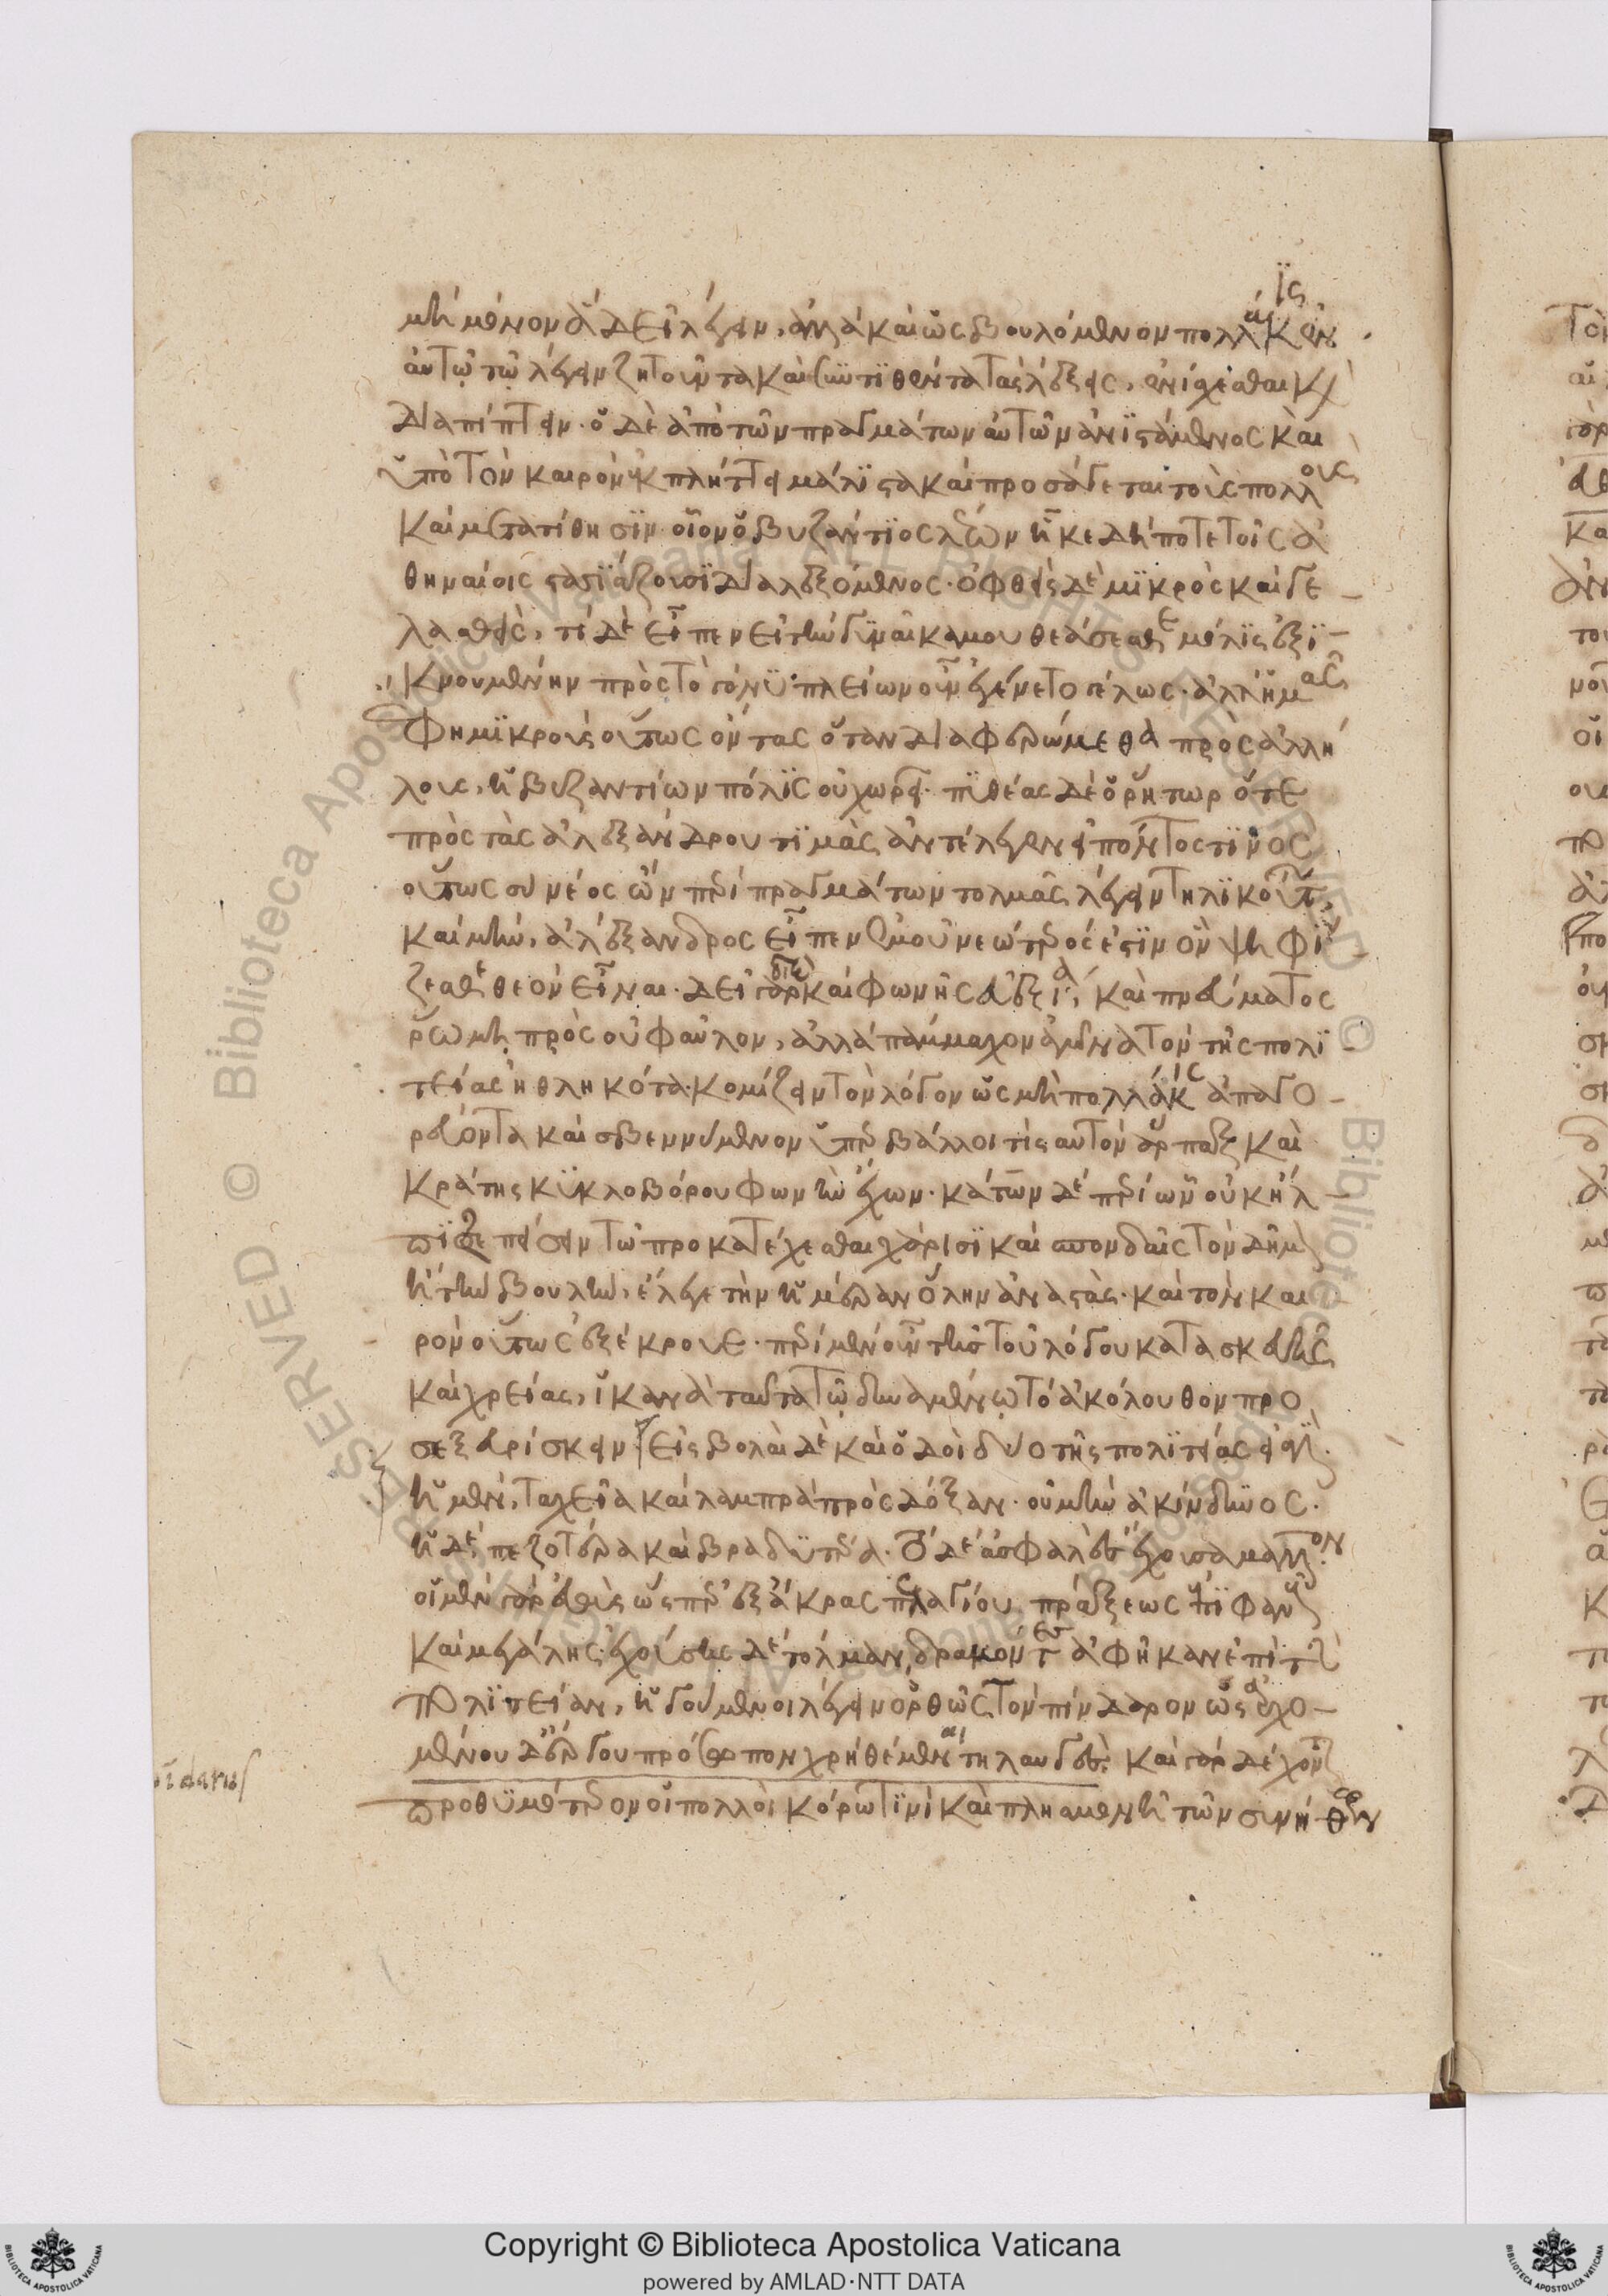 μὴ μόνον ἃ δεῖ λέγειν, ἀλλὰ καὶ ὡς βουλόμενον πολλάκις ἐν
αὐτῷ τῷ λέγειν ζητοῦντα καὶ συντιθέντα τὰς λέξεις, ἐνίσχεσθαι κ
διαπίπτειν· ὁ δὲ ἀπὸ τῶν πραγμάτων αὐτῶν ἀνιστάμενος καὶ
ὑπὸ τὸν καιρὸν ἐκπλήττει μάλιστα καὶ προσάγεται τοὺς πολλοὺς
καὶ μετατίθησιν· οἷον ὁ βυζάντιος λέων ἧκε δή ποτε τοῖς ἀ
θηναίοις στασιάζουσι διαλεξόμενος· ὀφθεὶς δὲ μικρὸς καὶ γε
λασθεὶς, τί δὲ εἶπεν εἰ τὴν γυναῖκα μου θεάσεσθε μόλις ἐξι
κνουμένην πρὸς τὸ γόνυ· πλείων οὖν ἐγένετο γέλως· ἀλλ' ἡμᾶς
φη μικροὺς οὕτως ὄντας ὅταν διαφερώμεθα πρὸς ἀλλή
λους, ἡ βυζαντίων πόλις οὐ χωρεῖ· πυθέας δὲ ὁ ῥήτωρ ὅτε
πρὸς τὰς ἀλεξάνδρου τιμὰς ἀντέλεγεν εἰπόντος τινος
οὕτως σὺ νέος ὢν περὶ πραγμάτων τολμᾶς λέγειν τηλικούτ
καὶ μὴν, ἀλέξανδρος εἶπεν ἐμοῦ νεώτερός ἐστιν ὃν ψηφί
ζεσθε θεὸν εἶναι· δεῖ γὰρ καὶ φωνῆς εὐεξία, καὶ πνεύματος
ῥώμῃ πρὸς οὐ φαῦλον, ἀλλὰ πάμμαχον ἀγῶνα τὸν τῆς πολι
τείας ἠθληκότα κομίζειν τὸν λόγον ὡς μὴ πολλάκις ἀπαγο
ρεύοντα καὶ σβεννύμενον ὑπερβάλλοι τις αὐτὸν ἅρπαξ καὶ
κράτης κυκλοβόρου φωνὴν ἔχων· κάτων δὲ περὶ ὧν οὐκ ἤλ
πιζε πείσειν τῷ προκατέχεσθαι χάρισι καὶ σπουδαῖς τὸν δῆμ
ἢ τὴν βουλὴν, ἔλεγε τὴν ἡμέραν ὅλην ἀναστὰς· καὶ τὸν και
ρὸν οὕτως ἐξέκρουε· περὶ μὲν οὖν τῆς τοῦ λόγου κατασκευῆς
καὶ χρείας, ἱκανὰ ταῦτα τῷ δυναμένῳ τὸ ἀκόλουθον προ
σεξευρίσκειν εἰσβολαὶ δὲ καὶ ὁδοὶ δύο τῆς πολιτείας εἰσ
ἡ μὲν, ταχεῖα καὶ λαμπρὰ πρὸς δόξαν· οὐ μὴν ἀκίνδυνος·
ἡ δὲ πεζοτέρα καὶ βραδυτέρα· τὸ δὲ ἀσφαλὲς ἔχουσα μᾶλλον
οἱ μὲν γὰρ εὐθὺς ὥσπερ ἐξ ἄκρας πελαγίου πράξεως ἐπιφαν
καὶ μεγάλης ἐχούσης δὲ τόλμαν, δραμόντες ἀφῆκαν ἐπὶ τ
πολιτείαν, ἡγούμενοι λέγειν ὀρθῶς τὸν πίνδαρον ὡς ἀρχο
μένου δ' ἔργου πρόσωπον χρὴ θέμεναι τηλαυγὲς καὶ γὰρ δέχοντ
pīdarus
προθυμότερον οἱ πολλοὶ κόρῳ τινὶ καὶ πλησμονῇ τῶν συνήθων